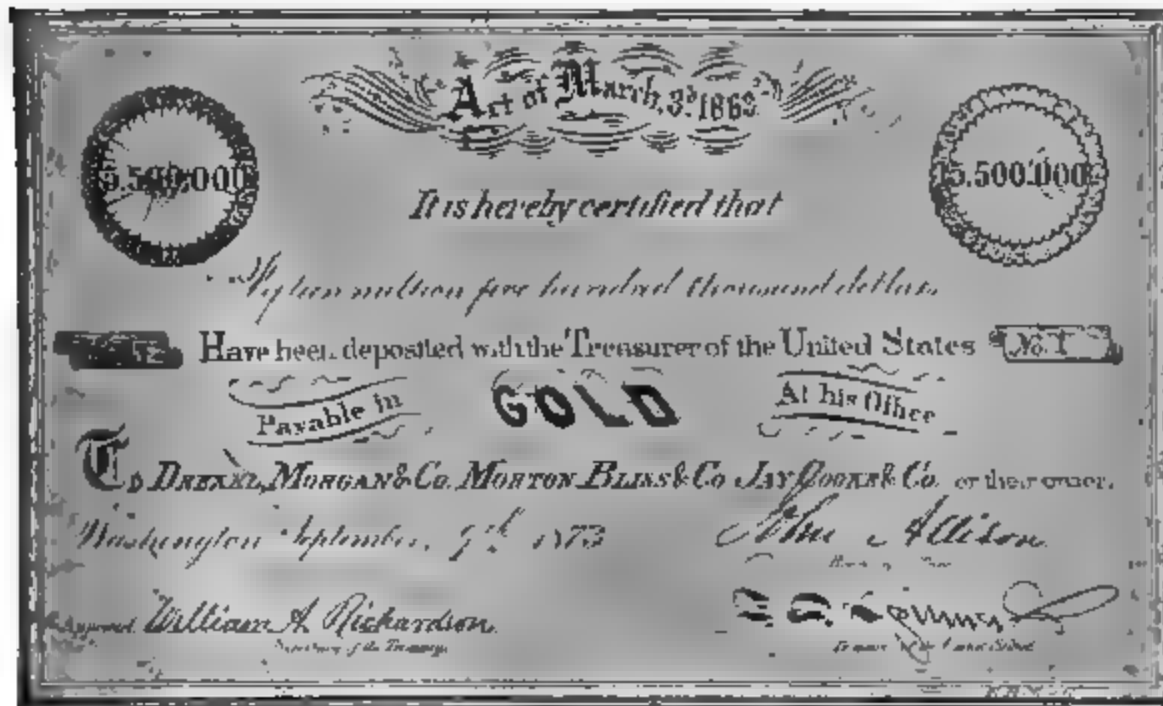 Act of March, 3ᵈ 1863
15.500.000
15.500.000
It is hereby certified that
Fifteen million five hundred thousand dollars
Have been deposited with the Treasurer of the United States
No. 1
Payable in GOLD At his Office
To DREXEL, MORGAN & Co. MORTON, BLISS & Co. JAY COOKE & Co. or their order.
Washington September, 9th 1873
John Allison
Approved William A. Richardson
Secretary of the Treasury
Treasurer of the United States